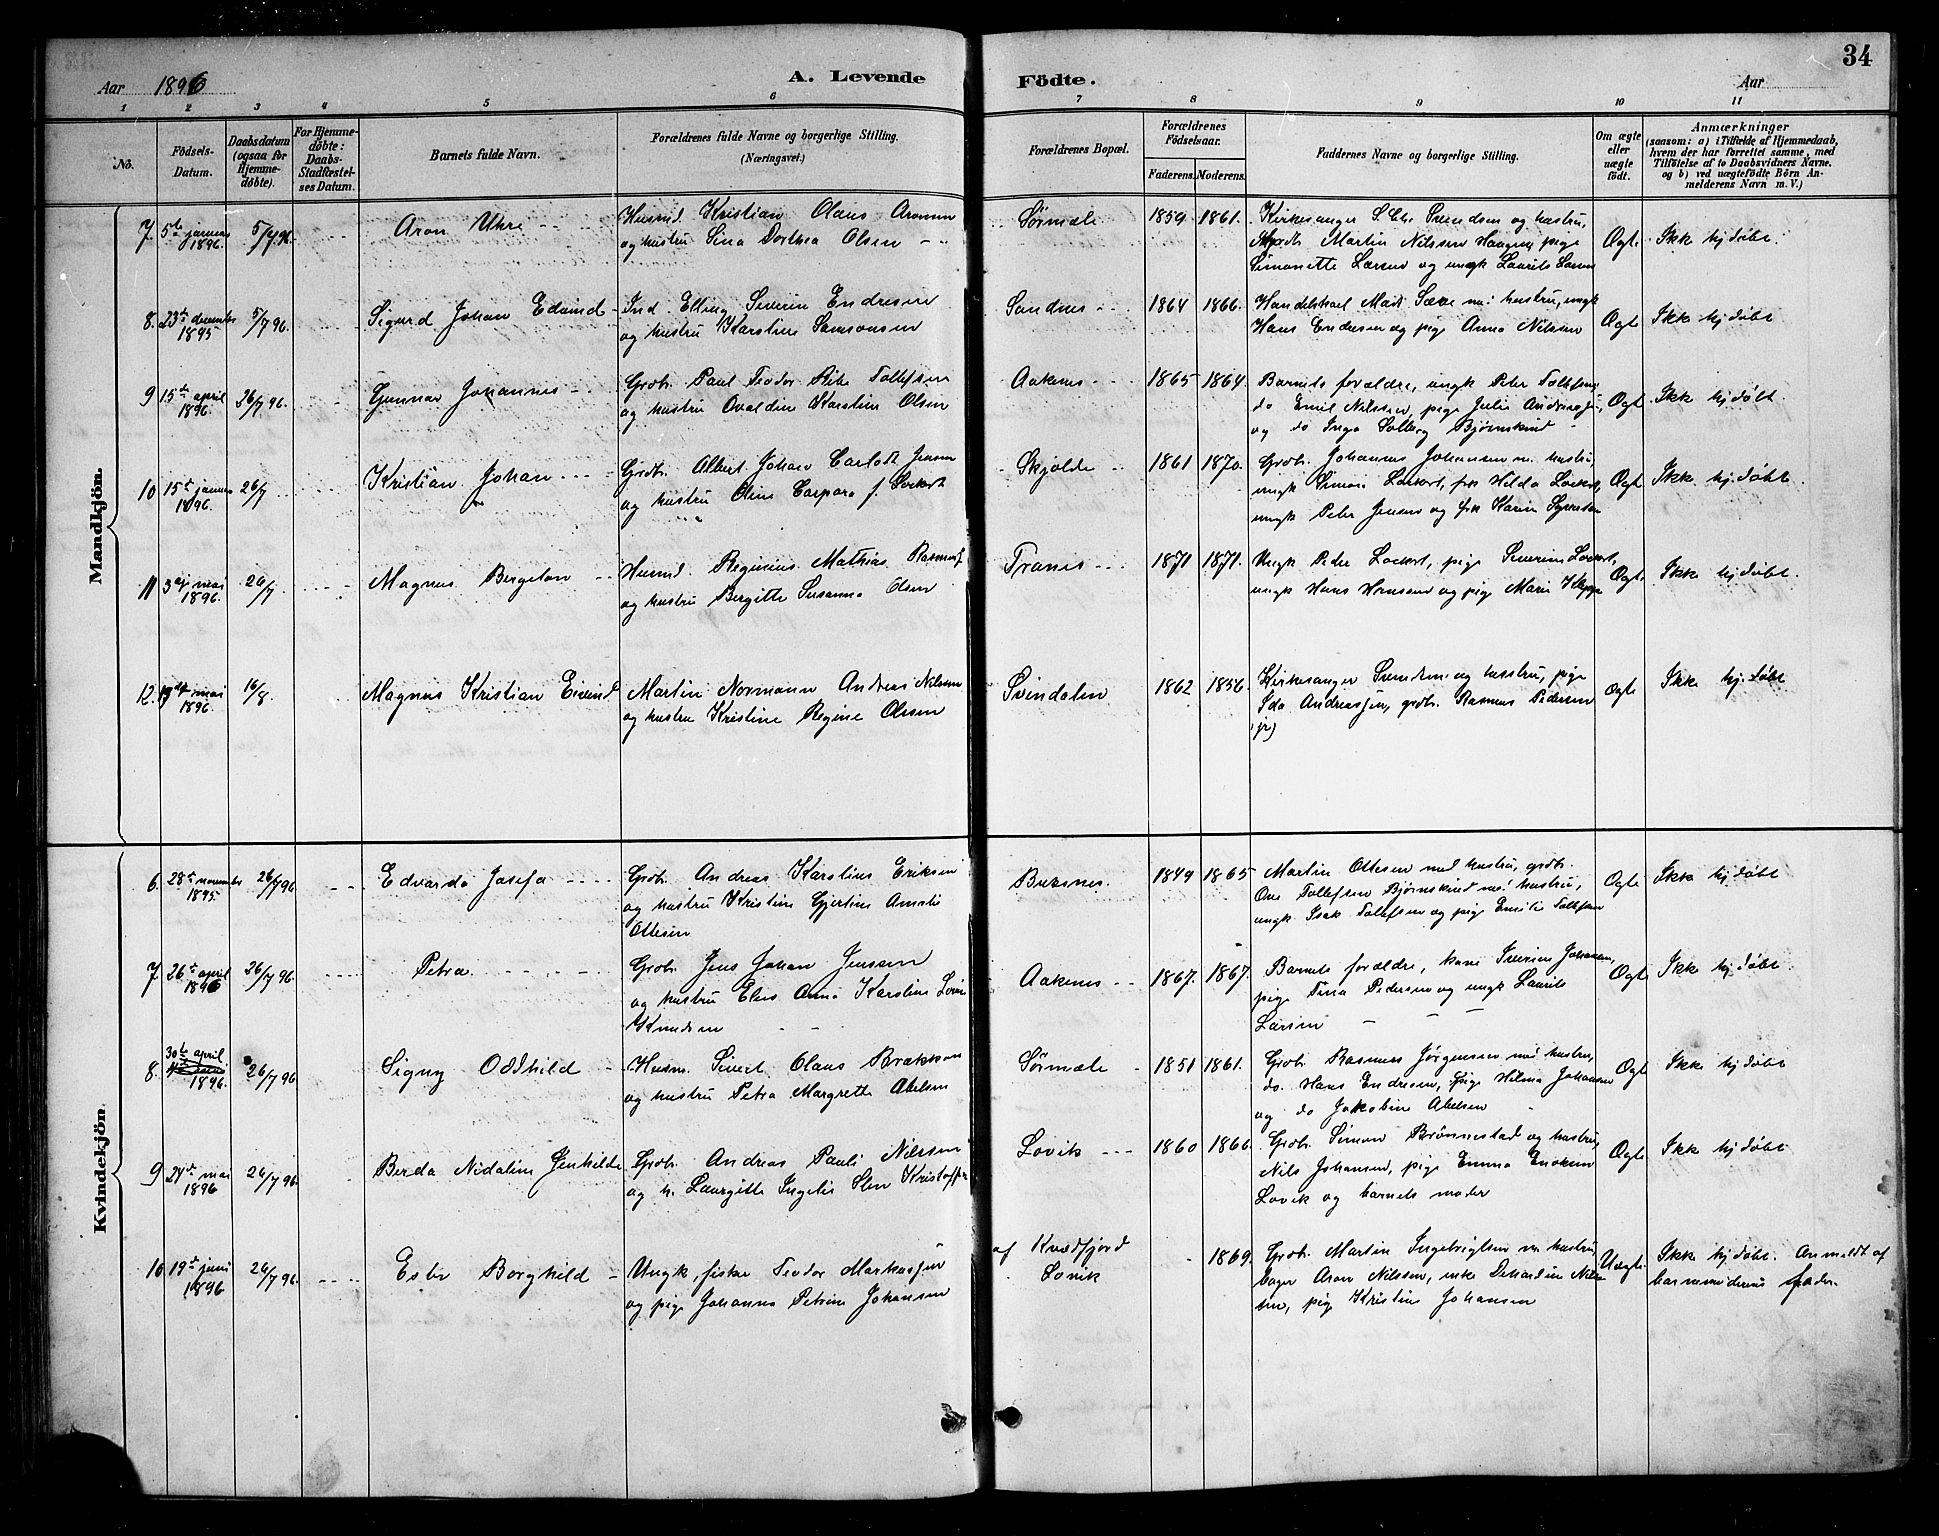 34
Aar 1896
A. Levende Födte.
Aar
1 2 3 4 5 6 7 8 9 10 11
No.
Födsels-Datum.
Daabsdatum (ogsaa for Hjemme-döbte).
For Hjemme-döbte: Daabs-Stadfæstel-ses Datum.
Barnets fulde Navn.
Forældrenes fulde Navne og borgerlige Stilling. (Næringsvei.)
Forældrenes Bopæl.
Forældrenes Födselsaar.
Faderens. Moderens.
Faddernes Navne og borgerlige Stilling.
Om ægte eller uægte födt.
Anmærkninger
(saasom: a) i Tilfælde af Hjemmedaab,
hvem der har forrettet samme, med
Tilföielse af to Daabsvidners Navne,
og b) ved uægtefödte Börn An-
melderens Navn m. V.)
Mandkjön.
7. 5te januar 1896. 5/7.96. Aron Uhre
Husmd. Kristian Olaus Aronsen
og hustru Sina Dorthea Olsen
Sørmæle 1859 1861.
Kirkesanger S. Chr. Svendsen og hustru,
Martin Nilssen Haagny, pige
Simonette Larsen og ungk Laurits Larsen
Ægte Ikke hj.døbt.
8. 23de december 1895 5/7 96. Sigurd Johan Edvind
Ind. Elling Severin Endresen
og hustru Karstine Samsonsen
Sandnes 1864 1866.
Handelskarl Mads Sæve m. hustru, ungk
Hans Endresen og pige Anna Nilsen
Ægte Ikke hj døbt
9 15de april 1896. 26/7 96. Gunnar Johannes
Grdbr. Paul Teodor Tollefsen
og hustru Ovaldine Karstine Olsen
Aaknes 1865 1864.
Barnets forældre, ungk Peter Tollefsen,
do Emil Nilssen, pige Julie
og do Inga Solberg Bjørnskind
Ægte Ikke hj døbt.
10 15de januar 1896. 26/7 Kristian Johan
Grdbr. Albert Johan Carlodt Jensen
og hustru Oline Caspara f. Lockert
Skjolde 1861 1870.
Grdbr. Johannes Johansen m. hustru,
ungk Simon Lockert, frk Hilda Lockert,
ungk Peter Jensen og frk Karin
Ægte Ikke hj.døbt.
11 3die mai 1896. 26/7 Magnus Bergeton
Husmd. Reginius Mathias
og hustru Bergitte Susanna Olsen
Tranes 1871 1871.
Ungk Peder Lockert, pige Severine Lockert,
ungk Hans Hansen og pige Marie
Ægte. Ikke hj døbt.
12. mai 1896. 16/8. Magnus Kristian Eivind
Martin Normann Andreas Nilsen
og hustru Kristine Regine Olsen
Svindalen 1862 1856.
Kirkesanger Svendsen og hustru, pige
Ida Andreassen, grdbr. Rasmus Pedersen
jr)
Ægte Ikke hj.døbt
Kvindekjön.
6. 28de november 1895. 26/7 96 Edvarda Josefa
Grdbr. Andreas Karstius Eriksen
og hustru Kristine Gjertine Amalie
Ottesen
Buksnes. 1849 1865
Martin Ottesen med hustru, grdbr.
Ove Tollefsen Bjørnskind m. hustru,
ungk Isak Tollefsen og pige Emilie Tollefsen
Ægte Ikke hj døbt
7. 26de april 1896 26/7 96. Petra
Grdbr. Jens Johan Jensen
og hustru Elen Anna Karstine
Knudsen
Aaknes 1867. 1867.
Barnets forældre, kone Severine Johansen,
pige Tina Pedersen og ungk Laurits
Larsen
Ægte Ikke hj døbt.
8. 30te april 1896. 26/7 96 Signy Oddhild
Husm. Sivert Olaus Brækkan
og hustru Petra Margrethe Abelsen
Sørmæle 1851 1861.
Grdbr. Rasmus Jørgensen m. hustru,
do. Hans Endresen, pige Hilma Johansen
og do Jakobine Abelsen
Ægte Ikke hj døbt
9 24de mai 1896 26/7 96. Berda Nidaline Jenhilde
Grdbr. Andreas Pauli Nilssen
og h. Laurgitte Ingelis Elen
Lovik 1860 1866.
Grdbr. Simon Brønnestad og hustru,
Nils Johansen, pige Emma Enoksen
Lovik og barnets moder
Ægte Ikke hj døbt
10 19de juni 1896 26/7 96. Ester Borghild
Ungk, fisker Teodor Markussen
og pige Johanna Petrine Johansen
af Kvædfjord
Lovik 1869.
Grdbr. Martin Ingebrigtsen m. hustru,
bager Aron Nilssen, enke
pige Kristine Johansen
Uægte. Ikke hj døbt. Anmeldt af
barnemoderens fader.